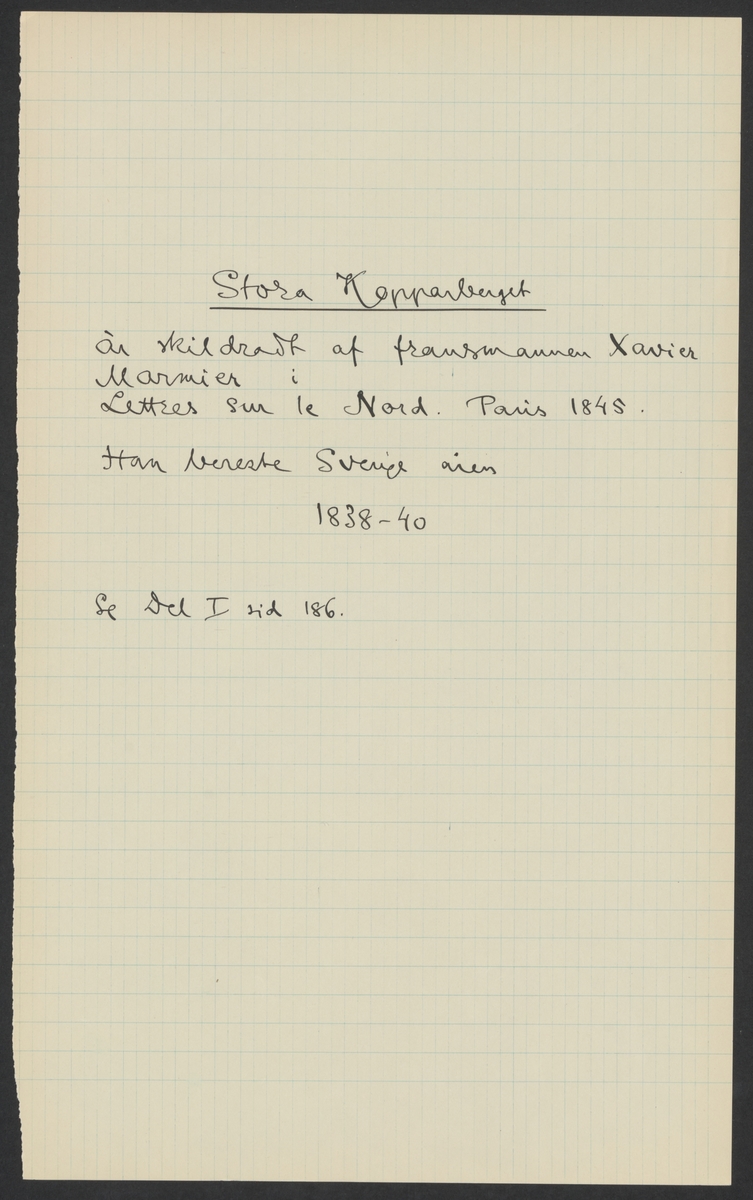 Stora Kopparberget
är skildradt af fransmannen Xavier
Marmier i
Lettres sur le Nord. Paris 1845.
Han bereste Sverige åren
1838-40
Se Del I sid 186.